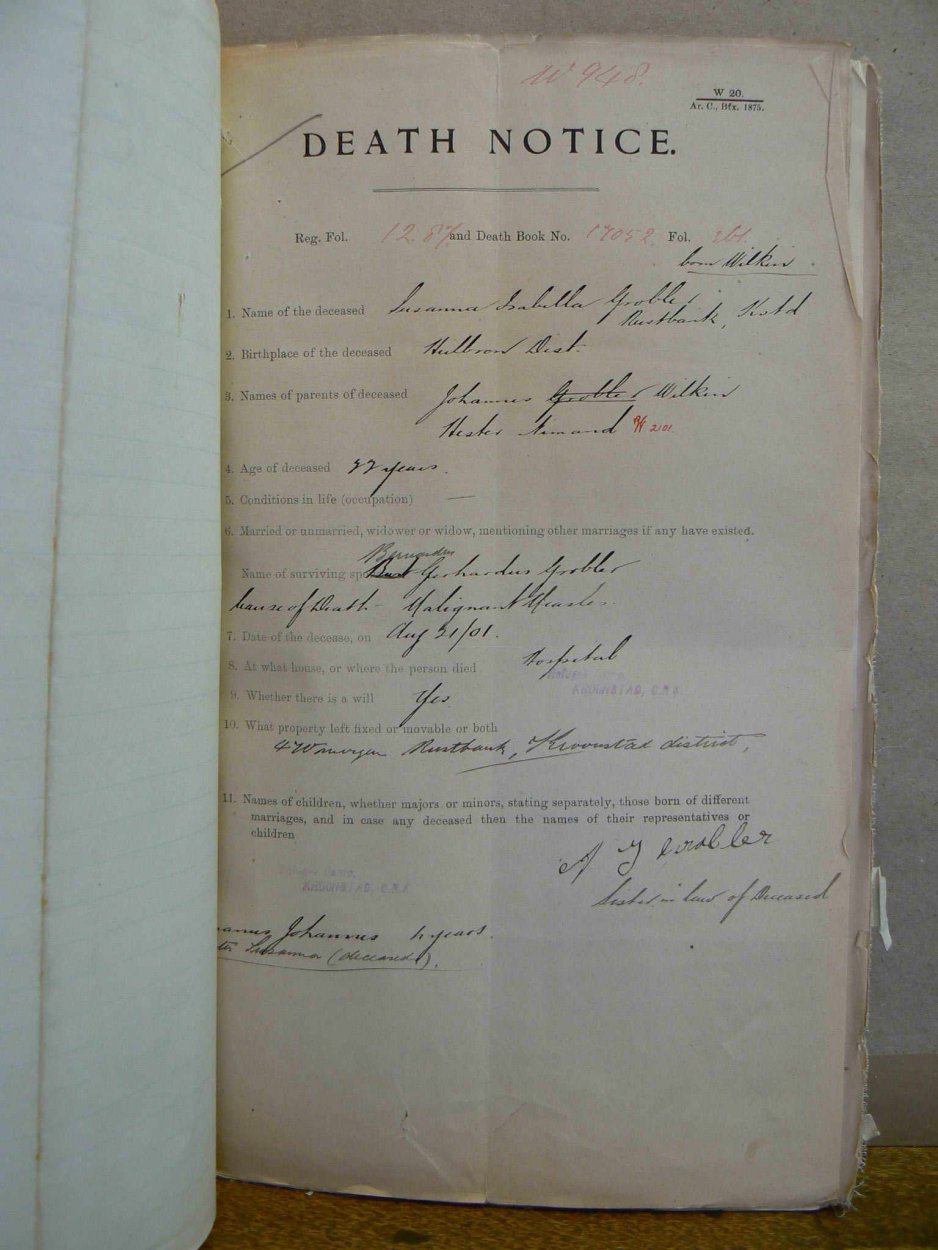 W 948.
W 20.
Ar. C., Bfx. 1875.
DEATH NOTICE.
Reg. Fol. 12 87 and Death Book No. 17052 Fol.
born Wilkin
1. Name of the deceased Susanna Isabella Grobler
Rustbank, Kstd
2. Birthplace of the deceased Heilbron Dist.
3. Names of parents of deceased Johannes Grobler Wilkin
Hester Nimand
4. Age of deceased 22 years.
5. Conditions in life (occupation) —
6. Married or unmarried, widower or widow, mentioning other marriages if any have existed.
Name of surviving Gerhardus Grobler
Cause of Death - Malignant Measles.
7. Date of the decease, on Aug 21/01.
8. At what house, or where the person died Hospital
KROONSTAD, O.R.C.
9. Whether there is a will Yes
10. What property left fixed or movable or both
morgen Rustbank, Kroonstad district,
11. Names of children, whether majors or minors, stating separately, those born of different
marriages, and in case any deceased then the names of their representatives or
children
Grobler
KROONSTAD, O.R.C.
Sister in law of Deceased
Johannes years.
Susanna (deceased).